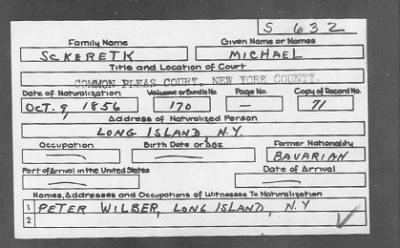 S 632
Family Name Given Name or Names
SCKERETK MICHAEL
Title and Location of Court
COMMON PLEAS COURT, NEW YORK COUNTY.
Date of Naturalization Volume or Bundle No. Page No. Copy of Record No.
OCT. 9, 1856 170 — 71
Address of Naturalized Person
LONG ISLAND, N.Y.
Occupation Birth Date or Age Former Nationality
BAVARIAN
Port of Arrival in the United States Date of Arrival
Names, Addresses and Occupations of Witnesses To Naturalization
1 PETER WILBER, LONG ISLAND, N.Y
2